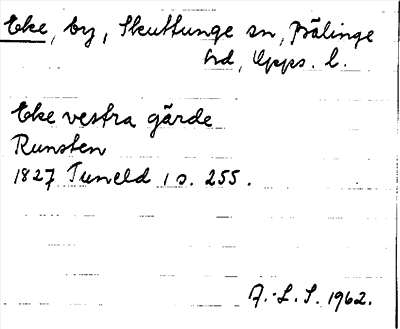 Eke, by, Skuttunge sn, Bälinge
hd, Upps. l.
Eke vestra gärde
Runsten
1827 Tuneld 1 s. 255.
A.-L. S. 1962.